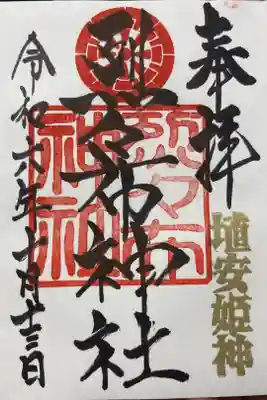 奉拝
埴安姫神
烈々布神社
烈々布
神社
令和六年十月十三日